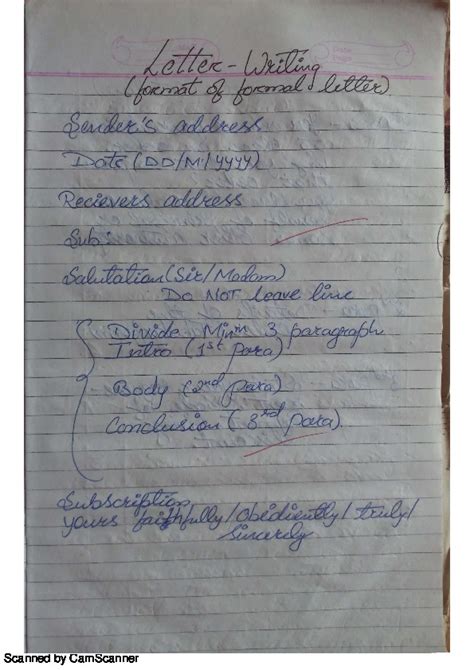 Letter-Writing
(format of formal letter)
Sender's address
Date (DD/M/yyyy)
Recievers address
Sub:
Salutation (Sir/Madam)
Do NOT leave line
Divide Minm 3 paragraph
Intro (1st Para)
Body (2nd para)
Conclusion (3rd para)
Subscription
yours faithfully/Obidiently/truly/
sincerely
Scanned by CamScanner